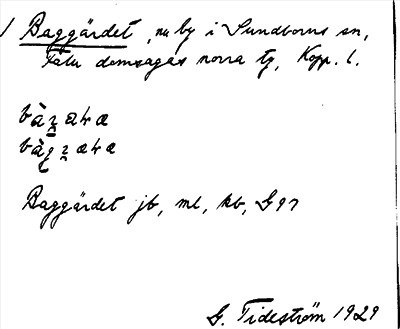 Baggärdet, nu by i Sundborns sn,
Falu domsagas norra tg, Kopp. l.
Baggärdet jb, ml, kb, G 97
G. Tideström 1929